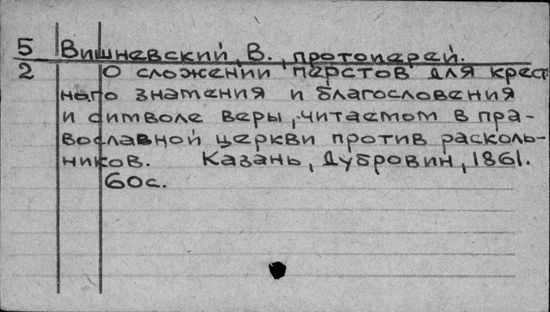 5 Вишневский, В., протоиерей.
2 О сложении перстов для крест
ного знамения и благословения
и символе веры, читаемом в пра-
вославной церкви против расколь-
ников. Казань, Дубровин, 1861.
60с.